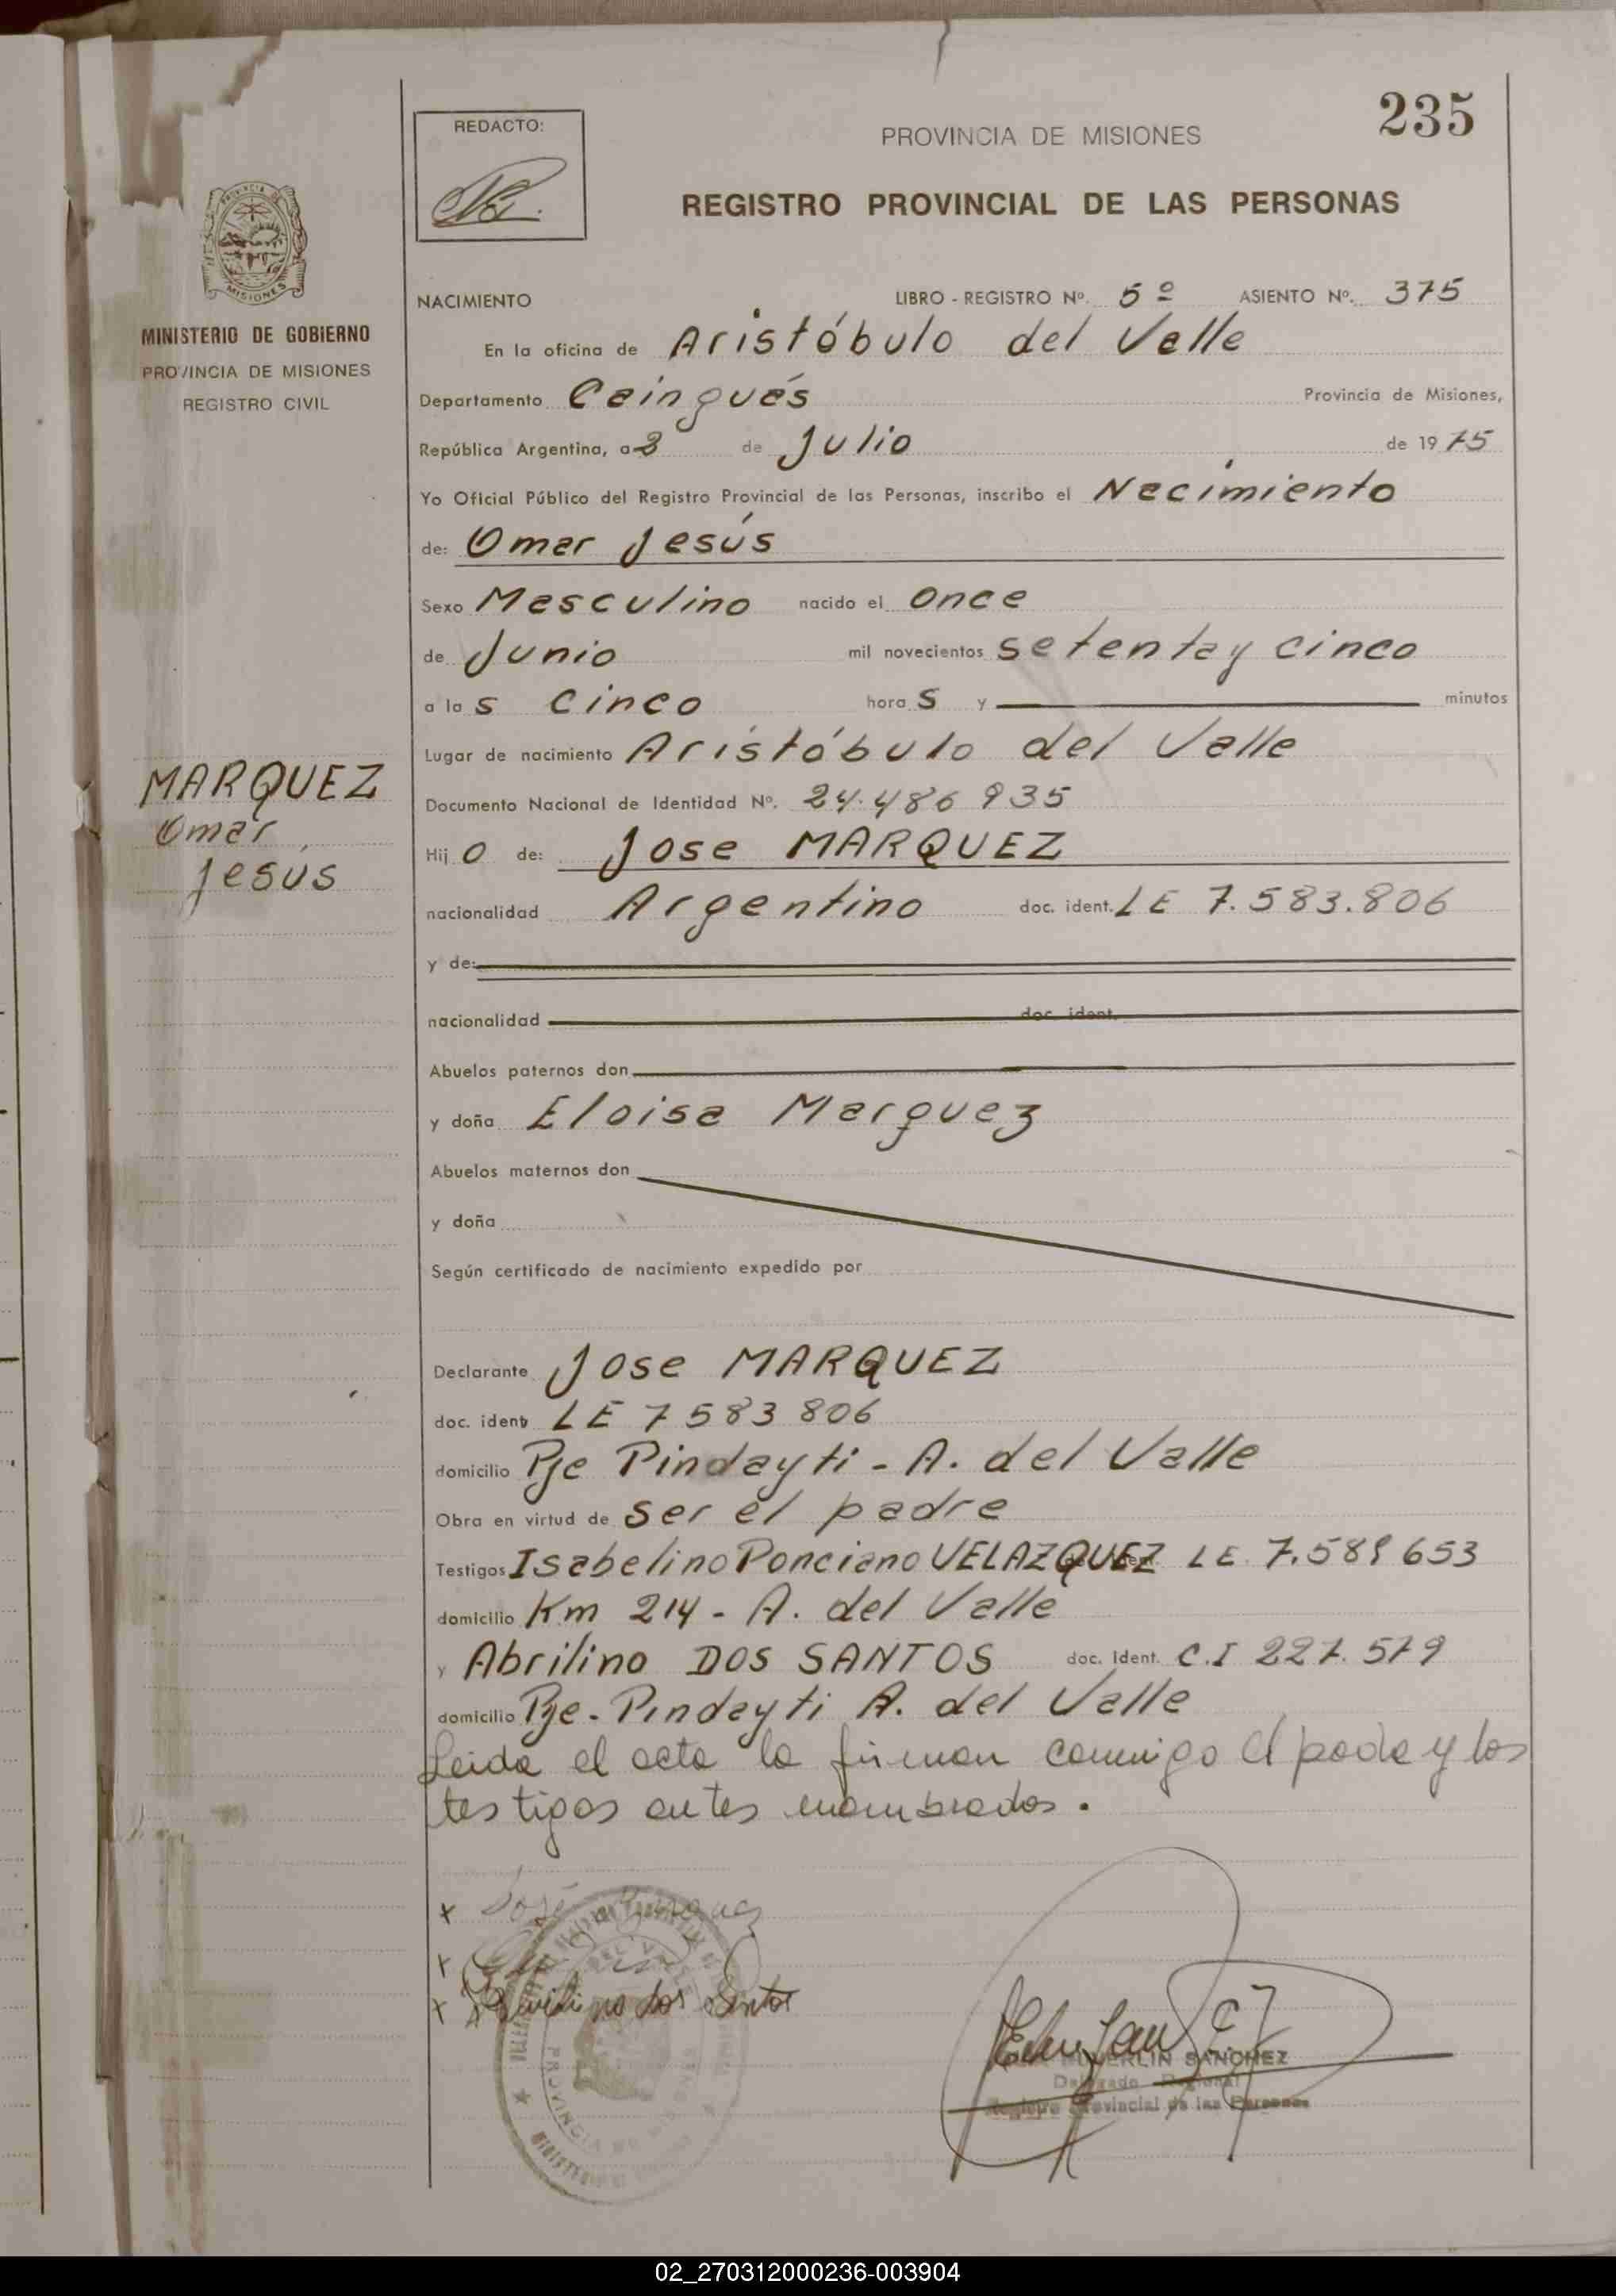 235
REDACTO:
PROVINCIA DE MISIONES
REGISTRO PROVINCIAL DE LAS PERSONAS
PROVINCIA DE
MISIONES
MINISTERIO DE GOBIERNO
PROVINCIA DE MISIONES
REGISTRO CIVIL
NACIMIENTO LIBRO - REGISTRO Nº. 5º ASIENTO Nº. 375
En la oficina de Aristóbulo del Valle
Departamento Caingués Provincia de Misiones,
República Argentina, a 2 de Julio de 1975
Yo Oficial Público del Registro Provincial de las Personas, inscribo el Nacimiento
de: Omar Jesús
Sexo Masculino nacido el once
de Junio mil novecientos setenta y cinco
a las cinco horas y minutos
Lugar de nacimiento Aristóbulo del Valle
MARQUEZ
Omar
Jesús
Documento Nacional de Identidad Nº. 24.486 935
Hijo de: Jose MARQUEZ
nacionalidad Argentino doc. ident. LE 7.583.806
y de:
nacionalidad doc. ident.
Abuelos paternos don
y doña Eloisa Marquez
Abuelos maternos don
y doña
Según certificado de nacimiento expedido por
Declarante Jose MARQUEZ
doc. ident LE 7 583 806
domicilio Pje Pindayti - A. del Valle
Obra en virtud de ser el padre
Testigos Isabelino Ponciano VELAZQUEZ LE 7.589 653
domicilio Km 214 - A. del Valle
y Abrilino DOS SANTOS doc. Ident. C.I 227.579
domicilio Pje - Pindayti A. del Valle
Leida el acta la firman conmigo el padre y los
testigos antes nombrados.
x José Marquez
x
x dos Santos
SANCHEZ
Delegado Regional
Registro Provincial de las Personas
02_270312000236-003904